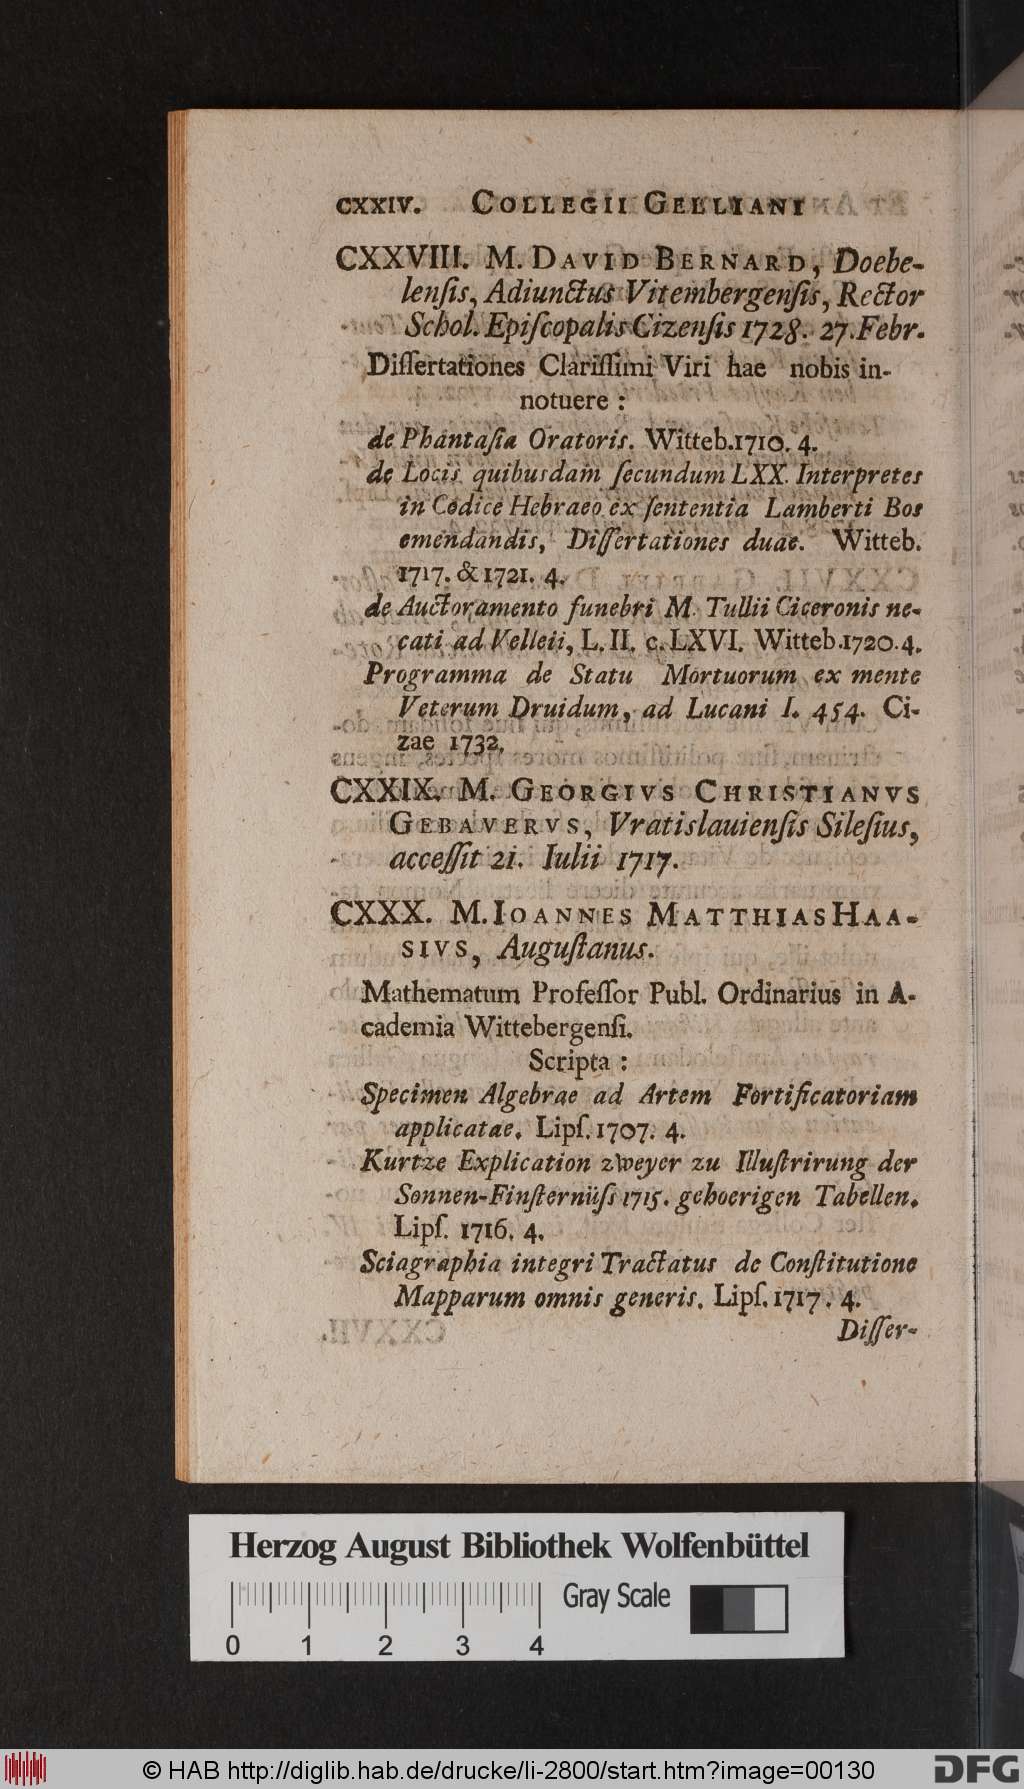 CXXIV. COLLEGII GELLIANI
CXXVIII. M. DAVID BERNARD, Doebe-
lenſis, Adiunctus Vitembergenſis, Rector
Schol. Epiſcopalis Cizenſis 1728. 27. Febr.
Diſſertationes Clariſſimi Viri hae nobis in-
notuere :
de Phantaſia Oratoris. Witteb. 1710. 4.
de Locis quibusdam ſecundum LXX. Interpretes
in Codice Hebraeo ex ſententia Lamberti Bos
emendandis, Diſſertationes duae. Witteb.
1717. & 1721. 4.
de Auctoramento funebri M. Tullii Ciceronis ne-
cati ad Velleii, L. II. c. LXVI. Witteb. 1720. 4.
Programma de Statu Mortuorum ex mente
Veterum Druidum, ad Lucani I. 454. Ci-
zae 1732.
CXXIX. M. GEORGIVS CHRISTIANVS
GEBAVERVS, Vratislauienſis Sileſius,
acceſſit 21. Iulii 1717.
CXXX. M. IOANNES MATTHIAS HAA-
SIVS, Auguſtanus.
Mathematum Profeſſor Publ. Ordinarius in A-
cademia Wittebergenſi.
Scripta :
Specimen Algebrae ad Artem Fortificatoriam
applicatae. Lipſ. 1707. 4.
Kurtze Explication zweyer zu Illuſtrirung der
Sonnen-Finſternüſs 1715. gehoerigen Tabellen.
Lipſ. 1716. 4.
Sciagraphia integri Tractatus de Conſtitutione
Mapparum omnis generis. Lipſ. 1717. 4.
Diſſer-
Herzog August Bibliothek Wolfenbüttel
Gray Scale
0 1 2 3 4
© HAB http://diglib.hab.de/drucke/li-2800/start.htm?image=00130
DFG